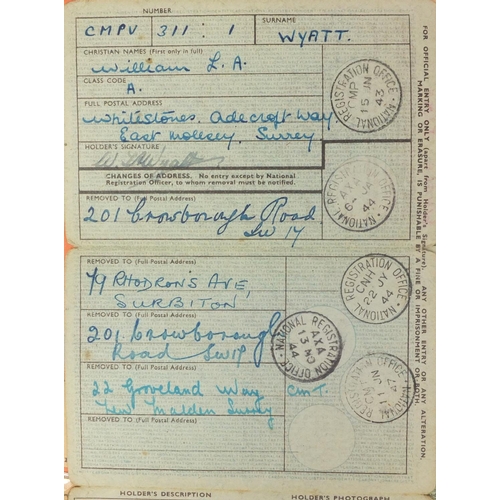 NUMBER
SURNAME
CMPV 311 : 1
WYATT.
CHRISTIAN NAMES (First only in full)
William L. A.
CLASS CODE
A.
FULL POSTAL ADDRESS
Whitestones. Adecroft Way
East Molesey. Surrey.
HOLDER'S SIGNATURE
W. Wyatt
CHANGES OF ADDRESS. No entry except by National
Registration Officer, to whom removal must be notified.
REMOVED TO (Full Postal Address)
201 Crowborough Road
SW 17
REMOVED TO (Full Postal Address)
79 RHODRON'S AVE,
SURBITON
REMOVED TO (Full Postal Address)
201 Crowborough
Road SW17
REMOVED TO (Full Postal Address)
22 Groveland Way
New Malden Surrey
CMT.
REMOVED TO (Full Postal Address)
HOLDER'S DESCRIPTION
HOLDER'S PHOTOGRAPH
NATIONAL REGISTRATION OFFICE
15 JN
43
NATIONAL
6 JA
44
NATIONAL REGISTRATION OFFICE
CNH
22 JY
44
NATIONAL REGISTRATION OFFICE
AXA
13 NO
44
OFFICE NATIONAL
11 JN
47
FOR OFFICIAL ENTRY ONLY (apart from Holder's Signature). ANY OTHER ENTRY OR ANY ALTERATION,
MARKING OR ERASURE, IS PUNISHABLE BY A FINE OR IMPRISONMENT OR BOTH.